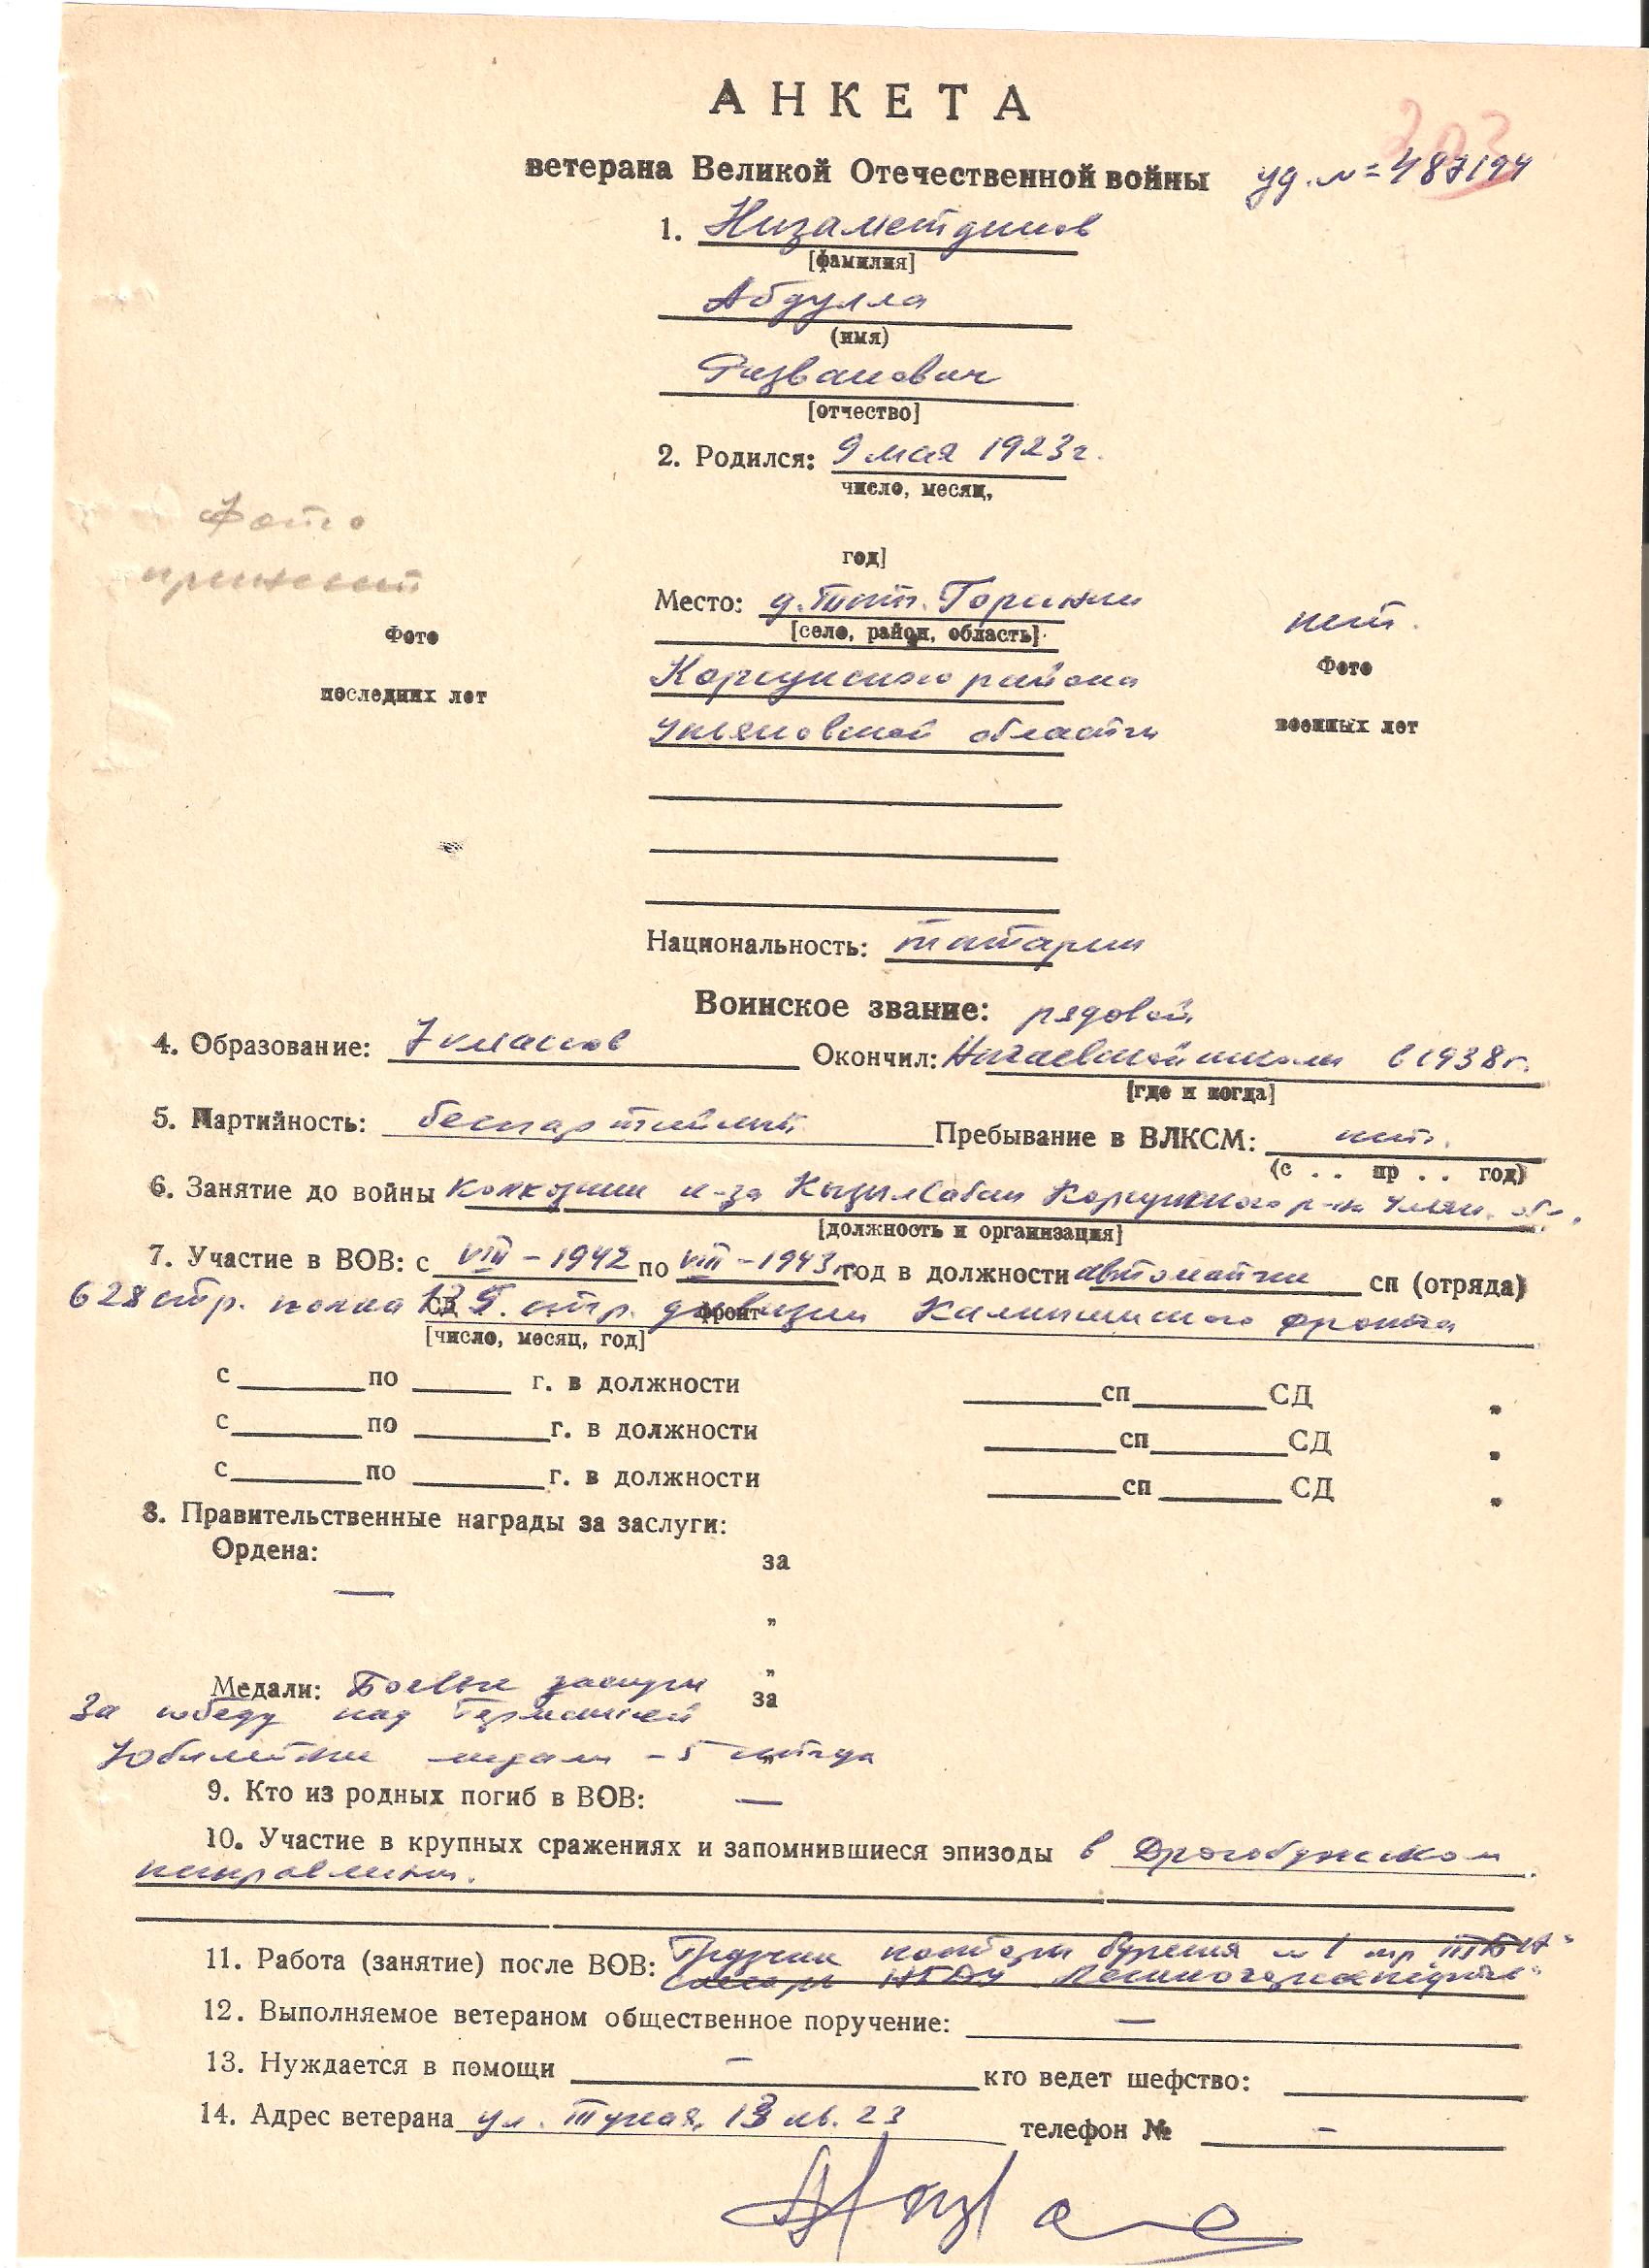 АНКЕТА
ветерана Великой Отечественной войны уд. №=487194
1. Низаметдинов
[фамилия]
Абдулла
(имя)
Ризванович
[отчество]
2. Родился: 9 мая 1923г.
число, месяц,
год]
Фото
Место: д. Тат. Горенки
[село, район, область]
нет.
Фото
последних лет
Карсунского района
Фото
военных лет
Ульяновской области
Национальность: татарин
Воинское звание: рядовой
4. Образование: 7 классов Окончил: школы в 1938г.
[где и когда]
5. Партийность: беспартийный Пребывание в ВЛКСМ: нет.
(с . . пр . . год)
6. Занятие до войны колхозник к-за Кызыл Сабан Карсунского р-на Ульян. обл.
[должность и организация]
7. Участие в ВОВ: с VIII - 1942 по VIII - 1943 год в должности автоматчик сп (отряда)
628 стр. полка СД стр. дивизии фронт Калининского фронта
[число, месяц, год]
с по г. в должности сп СД "
с по г. в должности сп СД "
с по г. в должности сп СД "
8. Правительственные награды за заслуги:
Ордена: за
—
"
"
Медали: Боевые заслуги за
За победу над Германией
Юбилейные медали - 5 "
9. Кто из родных погиб в ВОВ: —
10. Участие в крупных сражениях и запомнившиеся эпизоды в Дрогобужском
направлении.
11. Работа (занятие) после ВОВ: Грузчик конторы бурения №1 тр.
слесарь НГДУ „Лениногорскнефть"
12. Выполняемое ветераном общественное поручение: —
13. Нуждается в помощи — кто ведет шефство:
14. Адрес ветерана ул. Тукая, 13 кв. 23 телефон № —